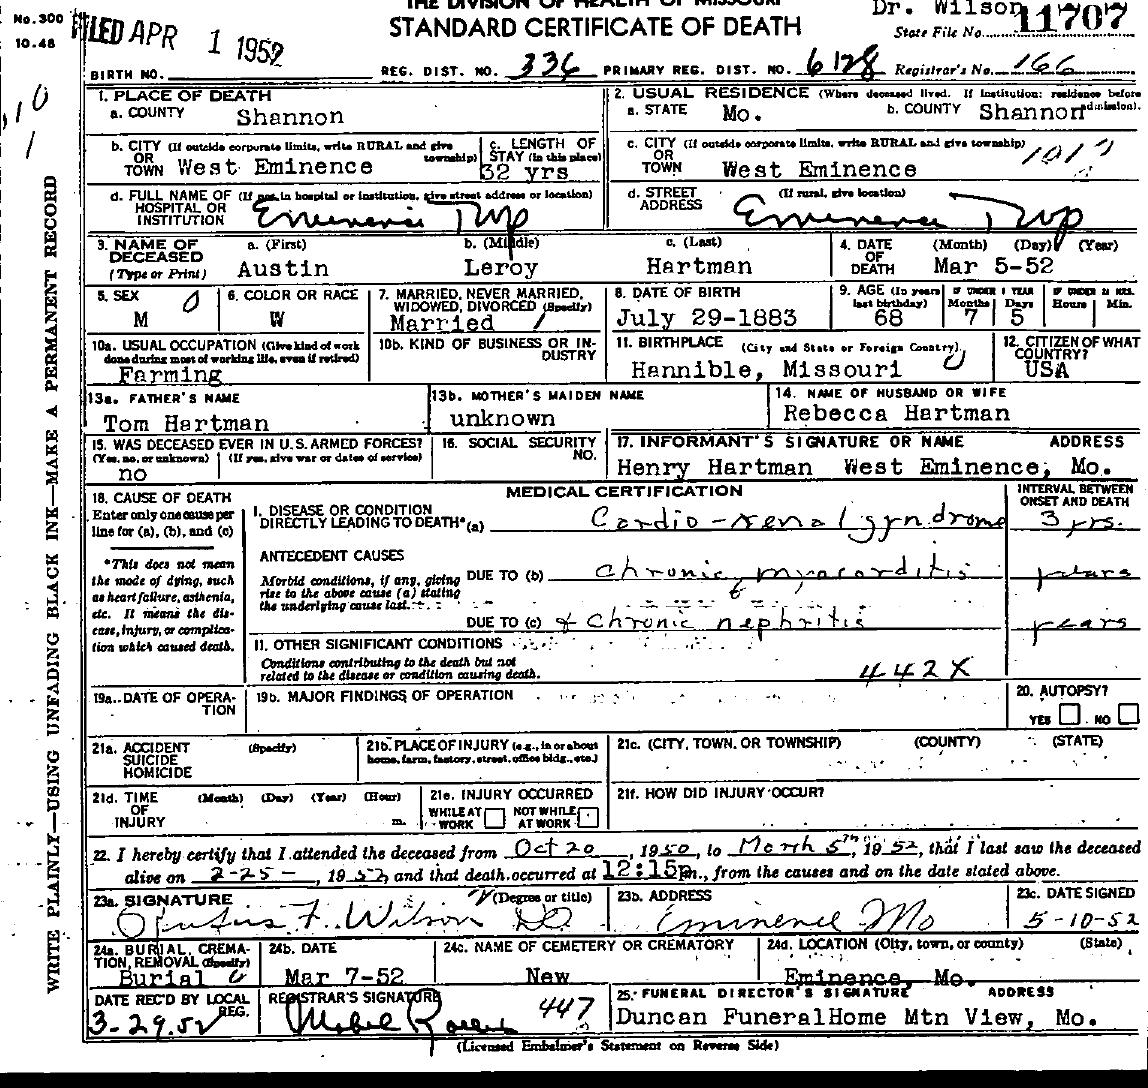 THE DIVISION OF HEALTH OF MISSOURI
No.300
10.48
FILED APR 1 1952
STANDARD CERTIFICATE OF DEATH
Dr. Wilson
State File No. 11707
BIRTH NO.
REG. DIST. NO. 336 PRIMARY REG. DIST. NO. 6128 Registrar's No. 166
WRITE PLAINLY—USING UNFADING BLACK INK—MAKE A PERMANENT RECORD
1. PLACE OF DEATH
a. COUNTY Shannon
2. USUAL RESIDENCE (Where deceased lived. If institution: residence before admission).
a. STATE Mo. b. COUNTY Shannon
b. CITY (If outside corporate limits, write RURAL and give township)
OR
TOWN West Eminence
c. LENGTH OF
STAY (in this place)
32 yrs
c. CITY (If outside corporate limits, write RURAL and give township)
OR
TOWN West Eminence
d. FULL NAME OF (If not in hospital or institution, give street address or location)
HOSPITAL OR
INSTITUTION Eminence Twp
d. STREET (If rural, give location)
ADDRESS Eminence Twp
3. NAME OF DECEASED
(Type or Print)
a. (First) Austin
b. (Middle) Leroy
c. (Last) Hartman
4. DATE OF DEATH (Month) (Day) (Year)
Mar 5-52
5. SEX
M
6. COLOR OR RACE
W
7. MARRIED, NEVER MARRIED,
WIDOWED, DIVORCED (Specify)
Married
8. DATE OF BIRTH
July 29-1883
9. AGE (In years last birthday) 68
IF UNDER 1 YEAR Months 7 Days 5
IF UNDER 24 HRS. Hours Min.
10a. USUAL OCCUPATION (Give kind of work
done during most of working life, even if retired)
Farming
10b. KIND OF BUSINESS OR INDUSTRY
11. BIRTHPLACE (City and State or Foreign Country)
Hannible, Missouri
12. CITIZEN OF WHAT
COUNTRY?
USA
13a. FATHER'S NAME
Tom Hartman
13b. MOTHER'S MAIDEN NAME
unknown
14. NAME OF HUSBAND OR WIFE
Rebecca Hartman
15. WAS DECEASED EVER IN U.S. ARMED FORCES?
(Yes, no, or unknown) (If yes, give war or dates of service)
no
16. SOCIAL SECURITY
NO.
17. INFORMANT'S SIGNATURE OR NAME ADDRESS
Henry Hartman West Eminence, Mo.
18. CAUSE OF DEATH
Enter only one cause per
line for (a), (b), and (c)
*This does not mean
the mode of dying, such
as heart failure, asthenia,
etc. It means the dis-
ease, injury, or complica-
tion which caused death.
MEDICAL CERTIFICATION
INTERVAL BETWEEN
ONSET AND DEATH
I. DISEASE OR CONDITION
DIRECTLY LEADING TO DEATH*(a) Cardio-renal syndrome 3 yrs.
ANTECEDENT CAUSES
Morbid conditions, if any, giving
rise to the above cause (a) stating
the underlying cause last.
DUE TO (b) Chronic myocarditis years
DUE TO (c) & Chronic nephritis years
II. OTHER SIGNIFICANT CONDITIONS
Conditions contributing to the death but not
related to the disease or condition causing death.
442X
19a. DATE OF OPERA-
TION
19b. MAJOR FINDINGS OF OPERATION
20. AUTOPSY?
YES NO
21a. ACCIDENT (Specify)
SUICIDE
HOMICIDE
21b. PLACE OF INJURY (e.g., in or about
home, farm, factory, street, office bldg., etc.)
21c. (CITY, TOWN, OR TOWNSHIP) (COUNTY) (STATE)
21d. TIME (Month) (Day) (Year) (Hour)
OF
INJURY m.
21e. INJURY OCCURRED
WHILE AT WORK NOT WHILE AT WORK
21f. HOW DID INJURY OCCUR?
22. I hereby certify that I attended the deceased from Oct 20, 1950, to March 5th, 1952, that I last saw the deceased
alive on 2-25-, 1952, and that death occurred at 12:15p m., from the causes and on the date stated above.
23a. SIGNATURE (Degree or title)
F. Wilson DO
23b. ADDRESS
Eminence Mo
23c. DATE SIGNED
5-10-52
24a. BURIAL, CREMA-
TION, REMOVAL (Specify)
Burial
24b. DATE
Mar 7-52
24c. NAME OF CEMETERY OR CREMATORY
New
24d. LOCATION (City, town, or county) (State)
Eminence, Mo.
DATE REC'D BY LOCAL
REG.
3-29-52
REGISTRAR'S SIGNATURE
Mabel
447
25. FUNERAL DIRECTOR'S SIGNATURE ADDRESS
Duncan FuneralHome Mtn View, Mo.
(Licensed Embalmer's Statement on Reverse Side)